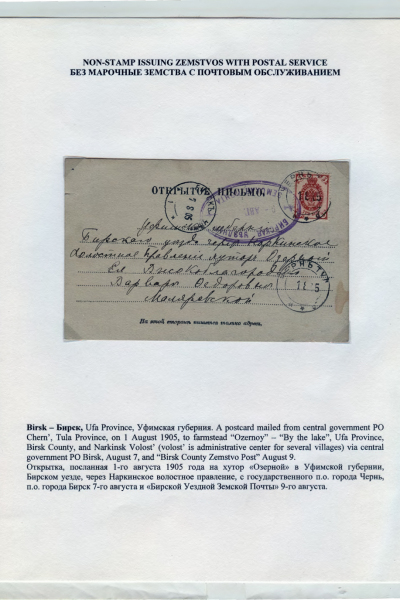 NON-STAMP ISSUING ZEMSTVOS WITH POSTAL SERVICE
БЕЗ МАРОЧНЫЕ ЗЕМСТВА С ПОЧТОВЫМ ОБСЛУЖИВАНИЕМ
ОТКРЫТОЕ ПИСЬМО.
Уфимская губ.
Бирского уезда через
Волостное Правление хутор Озерный
Ея Высокоблагородию
Варваре Федоровне
Маляровской
На этой стороне пишется только адрес.
Birsk – Бирск, Ufa Province, Уфимская губерния. A postcard mailed from central government PO
Chern’, Tula Province, on 1 August 1905, to farmstead “Ozernoy” – “By the lake”, Ufa Province,
Birsk County, and Narkinsk Volost’ (volost’ is administrative center for several villages) via central
government PO Birsk, August 7, and “Birsk County Zemstvo Post” August 9.
Открытка, посланная 1-го августа 1905 года на хутор «Озерной» в Уфимской губернии,
Бирском уезде, через Наркинское волостное правление, с государственного п.о. города Чернь,
п.о. города Бирск 7-го августа и «Бирской Уездной Земской Почты» 9-го августа.